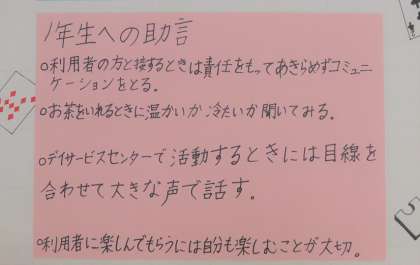 1年生への助言
○利用者の方と接するときは責任をもってあきらめずコミュニ
ケーションをとる。
○お茶をいれるときに温かいか冷たいか聞いてみる。
○デイサービスセンターで活動するときには目線を
合わせて大きな声で話す。
○利用者に楽しんでもらうには自分も楽しむことが大切。